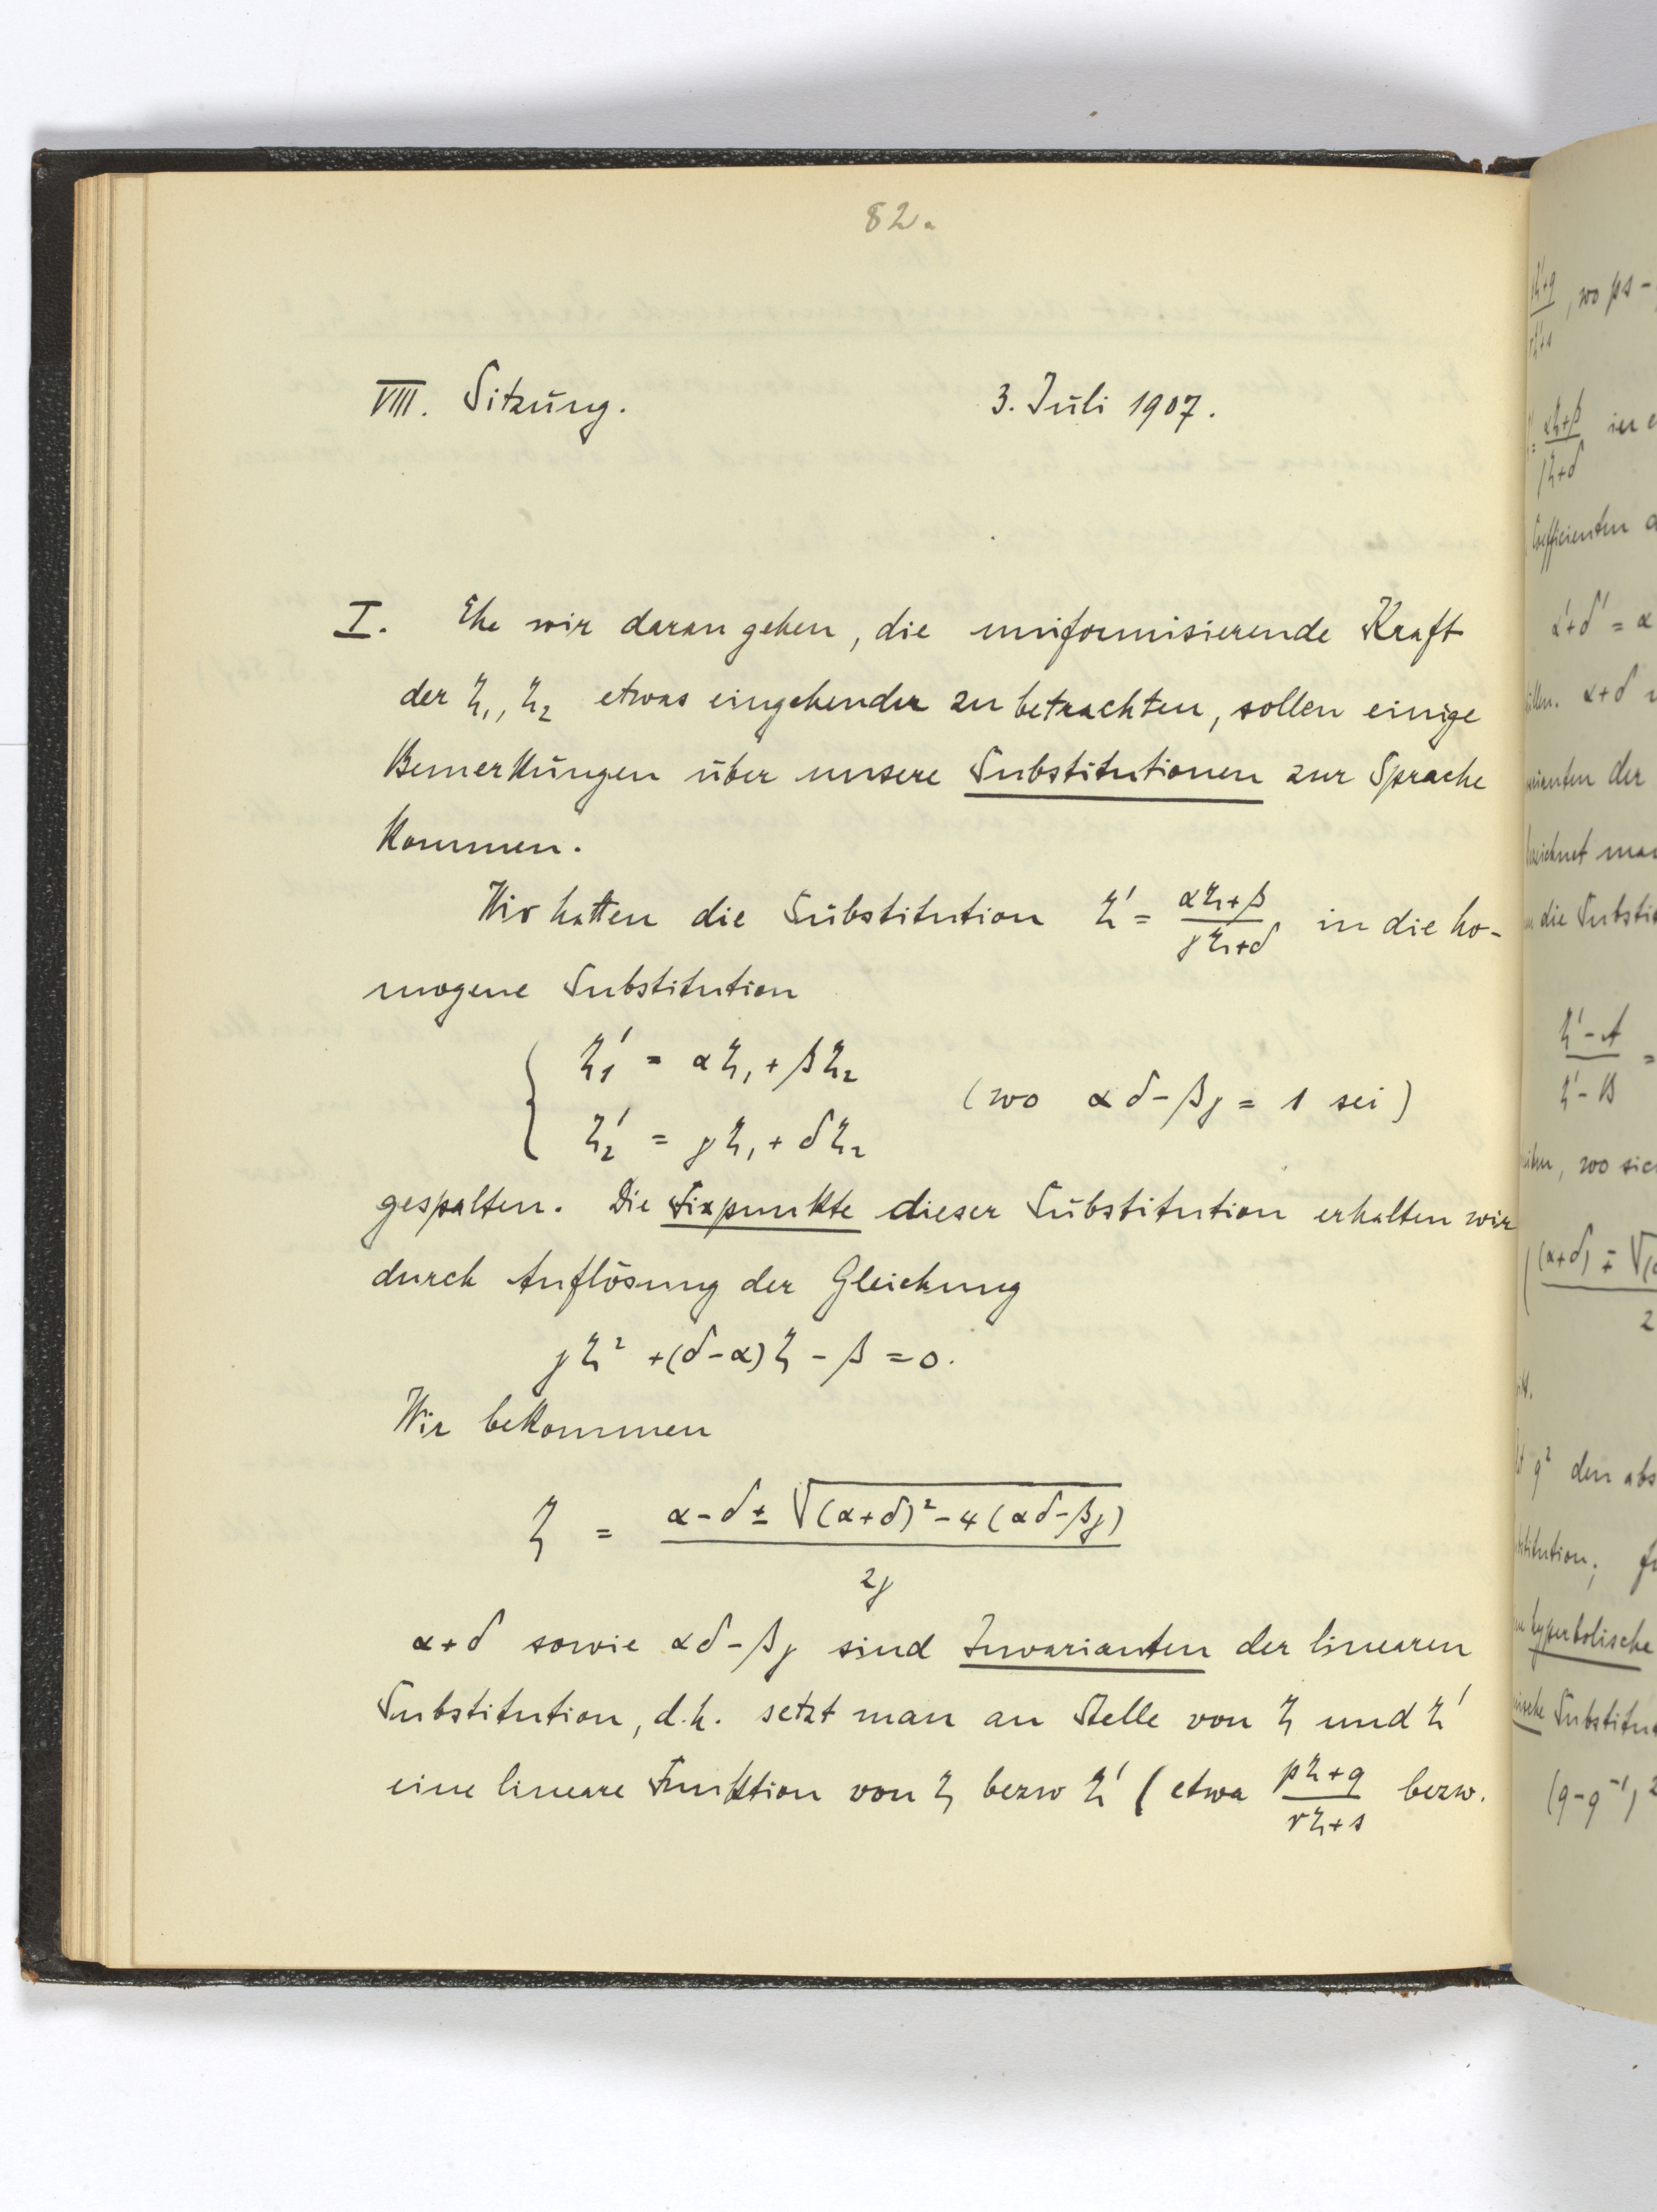 82.
VIII. Sitzung. 3. Juli 1907.
I. Ehe wir daran gehen, die uniformisierende Kraft
der ζ₁, ζ₂ etwas eingehender zu betrachten, sollen einige
Bemerkungen über unsere Substitutionen zur Sprache
kommen.
Wir hatten die Substitution ζ' = (αζ+β)/(γζ+δ) in die ho-
mogene Substitution
ζ₁' = αζ₁ + βζ₂
(wo αδ-βγ = 1 sei)
ζ₂' = γζ₁ + δζ₂
gespalten. Die Fixpunkte dieser Substitution erhalten wir
durch Auflösung der Gleichung
γζ² + (δ-α)ζ - β = 0.
Wir bekommen
ζ = (α-δ ± √((α+δ)² - 4(αδ-βγ)))/2γ
α+δ sowie αδ-βγ sind Invarianten der linearen
Substitution, d.h. setzt man an Stelle von ζ und ζ'
eine lineare Funktion von ζ bezw ζ' (etwa (pζ+q)/(rζ+s) bezw.
, wo ps-
αζ+β
γζ+δ
Coefficienten
α'+δ' = α
α+δ
der
man
die Substi
ζ'-A
ζ'-B
=
, wo sic
(α+δ) ∓ √
2
q² den abs
hyperbolische
Substitu
(q-q⁻¹)²